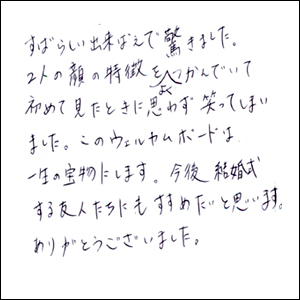 すばらしい出来ばえで驚きました。
2人の顔の特徴をよくつかんでいて
初めて見たときに思わず笑ってしまい
ました。このウェルカムボードは
一生の宝物にします。今後結婚式
する友人たちにもすすめたいと思います。
ありがとうございました。